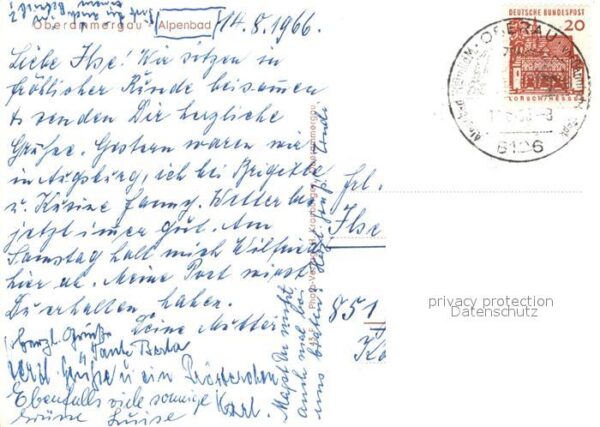 Oberammergau - Alpenbad
14.8.1966.
Liebe Ilse! Wir sitzen in
fröhlicher Runde beisammen
& senden Dir herzliche
Grüße. Gestern waren wir
in Augsburg, ich bei Brigitte
u. Kusine Fanny. Wetter bis
jetzt immer gut. Am
Samstag holt mich Wilfried
hier ab. Meine Post wirst
Du erhalten haben.
Deine Mutter
Herzl. Grüße
Tante Berta
Herzl. Grüße u ein
Karl.
Ebenfalls viele sonnige
Grüsse Luise
Magst Du nicht
auch mal bei
uns
Photo-Verlag H. Kronburger, Oberammergau
DEUTSCHE BUNDESPOST
20
LORSCH/HESSEN
OBERAU
8106
Frl.
Ilse
851
privacy protection
Datenschutz